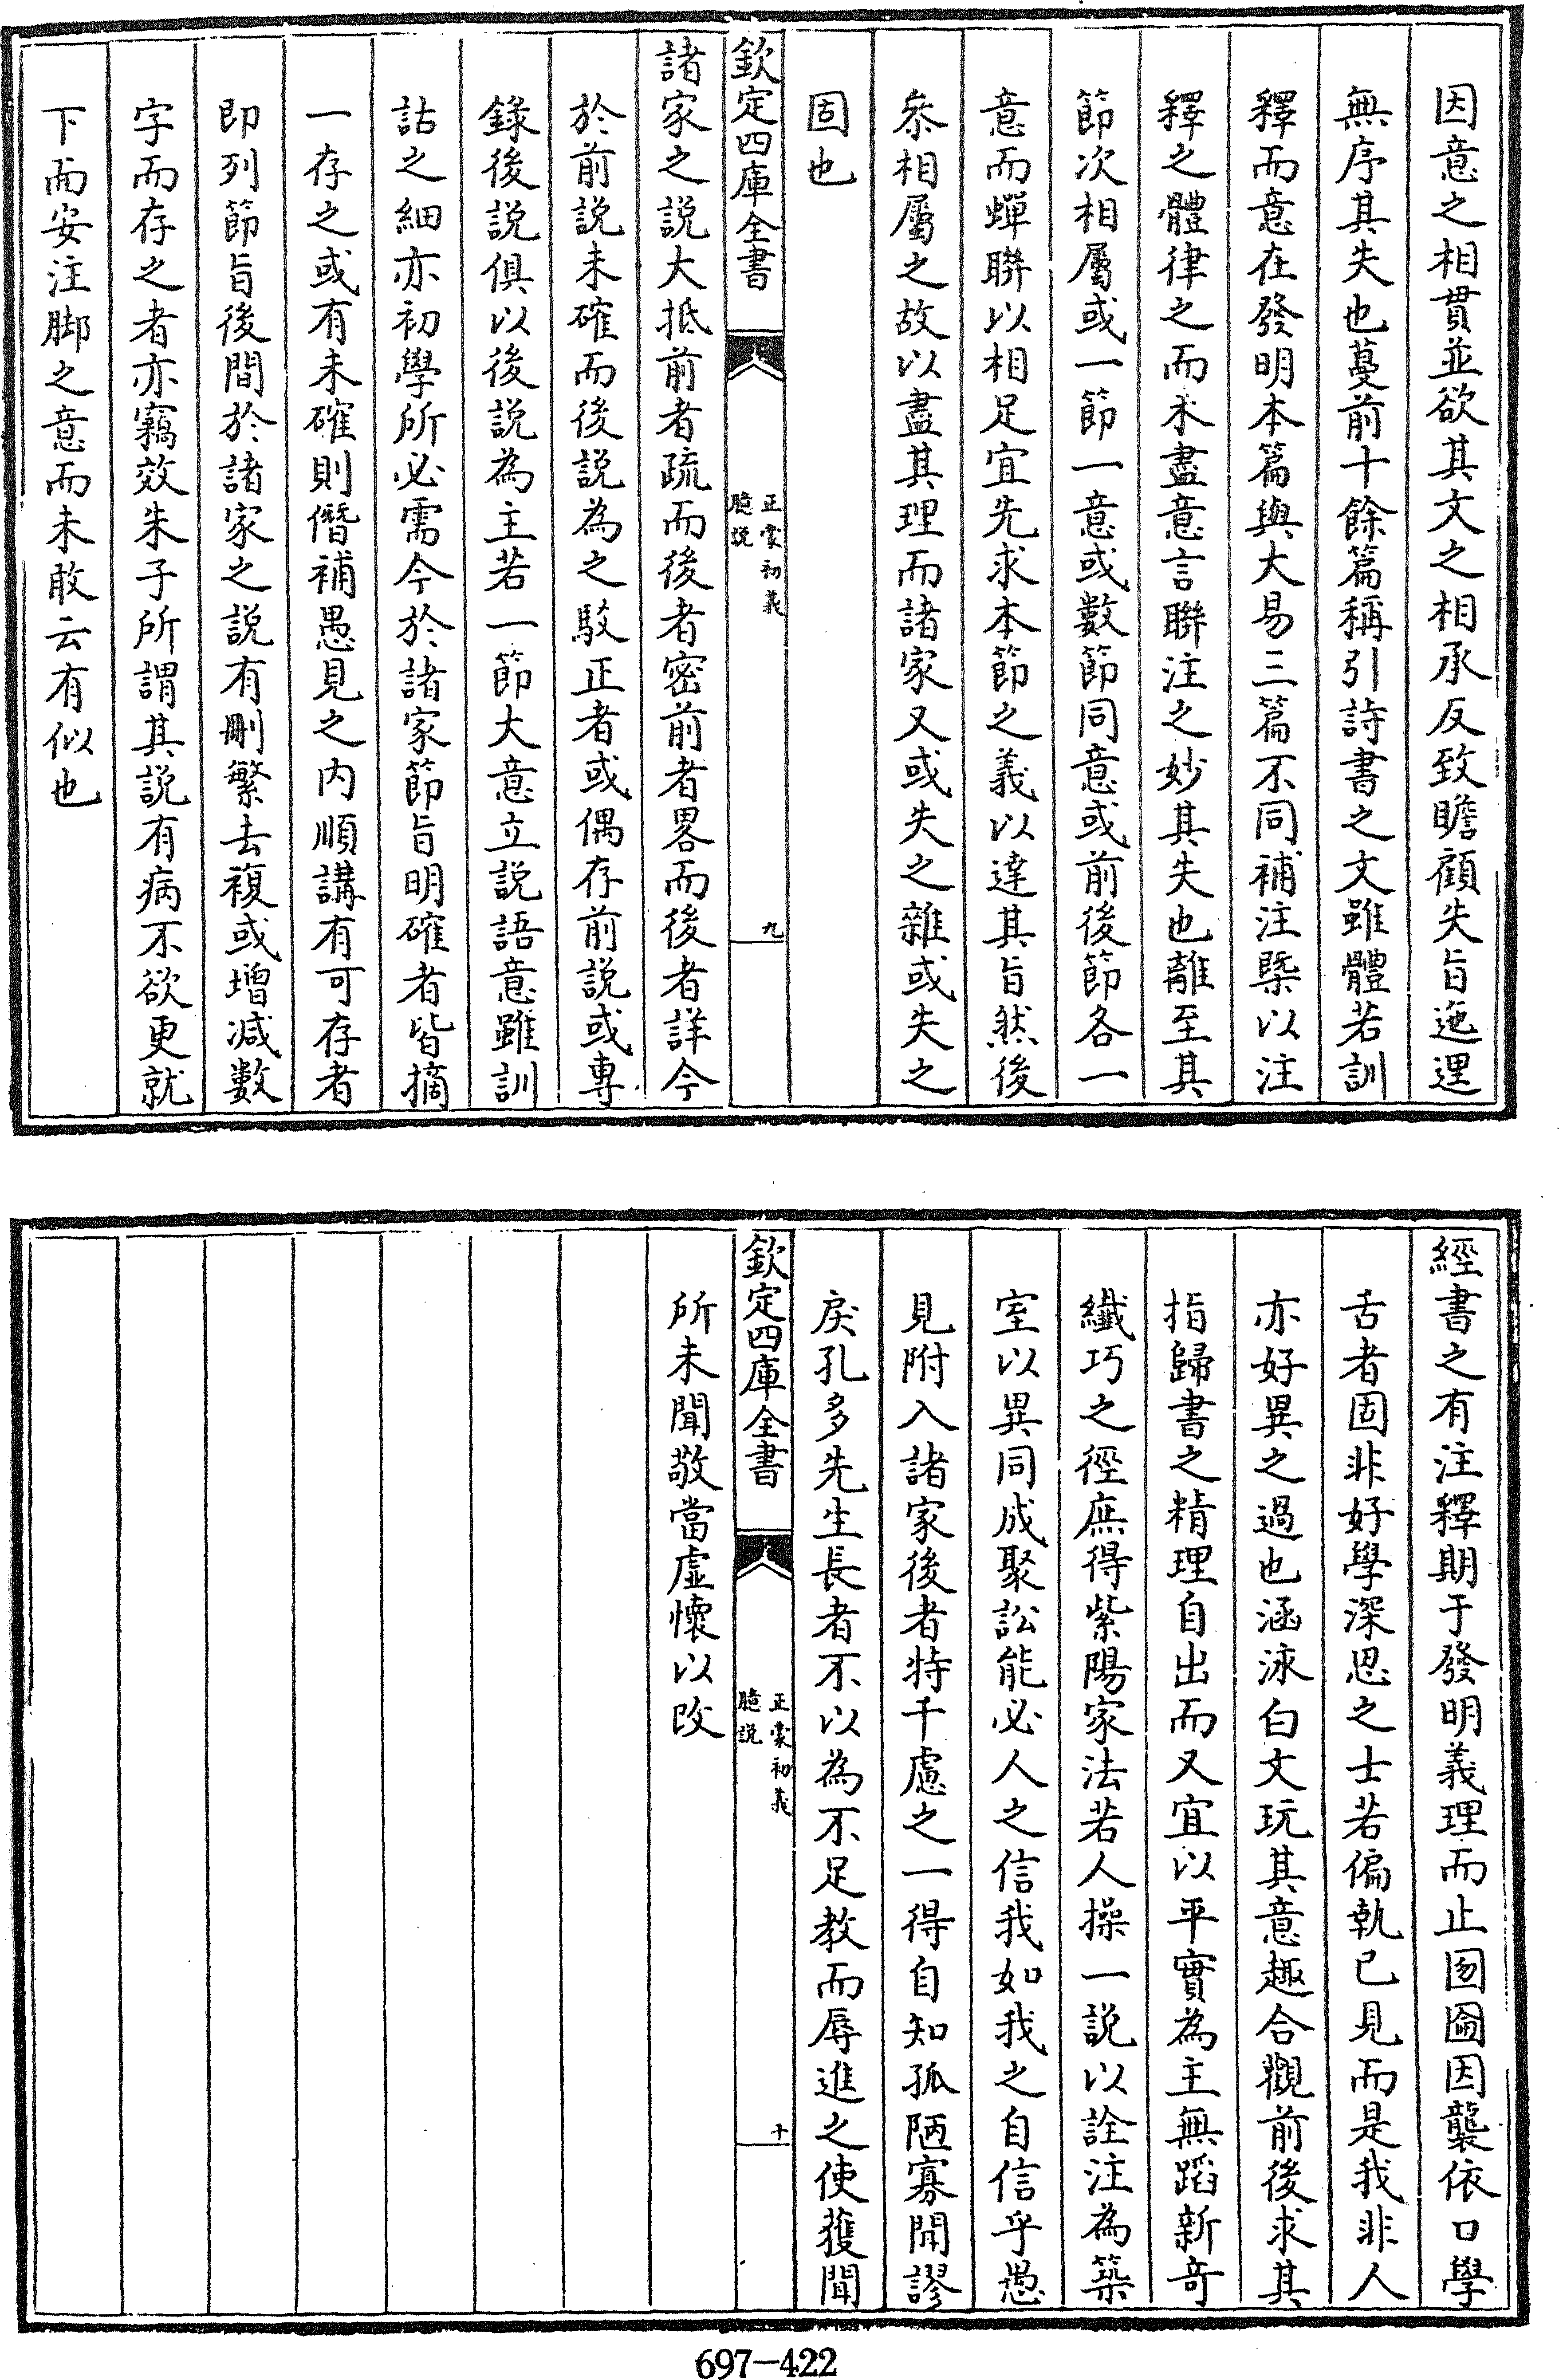 因意之相貫並欲其文之相承反致瞻顧失旨迤邐
無序其失也蔓前十餘篇稱引詩書之文雖體若訓
釋而意在發明本篇與大易三篇不同補注槩以注
釋之體律之而未盡意言聯注之妙其失也離至其
節次相屬或一節一意或數節同意或前後節各一
意而蟬聯以相足宜先求本節之義以達其旨然後
叅相屬之故以盡其理而諸家又或失之雜或失之
固也
欽定四庫全書
正蒙初義
臆説
九
諸家之説大抵前者疏而後者密前者畧而後者詳今
於前説未確而後説為之駮正者或偶存前説或專
錄後説俱以後説為主若一節大意立説語意雖訓
詁之細亦初學所必需今於諸家節旨明確者皆摘
一存之或有未確則僭補愚見之内順講有可存者
即列節旨後間於諸家之説有刪繁去複或增减數
字而存之者亦竊效朱子所謂其説有病不欲更就
下而安注脚之意而未敢云有似也
經書之有注釋期于發明義理而止囫圇因襲依口學
舌者固非好學深思之士若偏執已見而是我非人
亦好異之過也涵泳白文玩其意趣合觀前後求其
指歸書之精理自出而又宜以平實為主無蹈新竒
纖巧之徑庶得紫陽家法若人操一説以詮注為築
室以異同成聚訟能必人之信我如我之自信乎愚
見附入諸家後者特千慮之一得自知孤陋寡聞謬
戾孔多先生長者不以為不足教而辱進之使獲聞
欽定四庫全書
正蒙初義
臆説
十
所未聞敬當虛懷以改
697-422